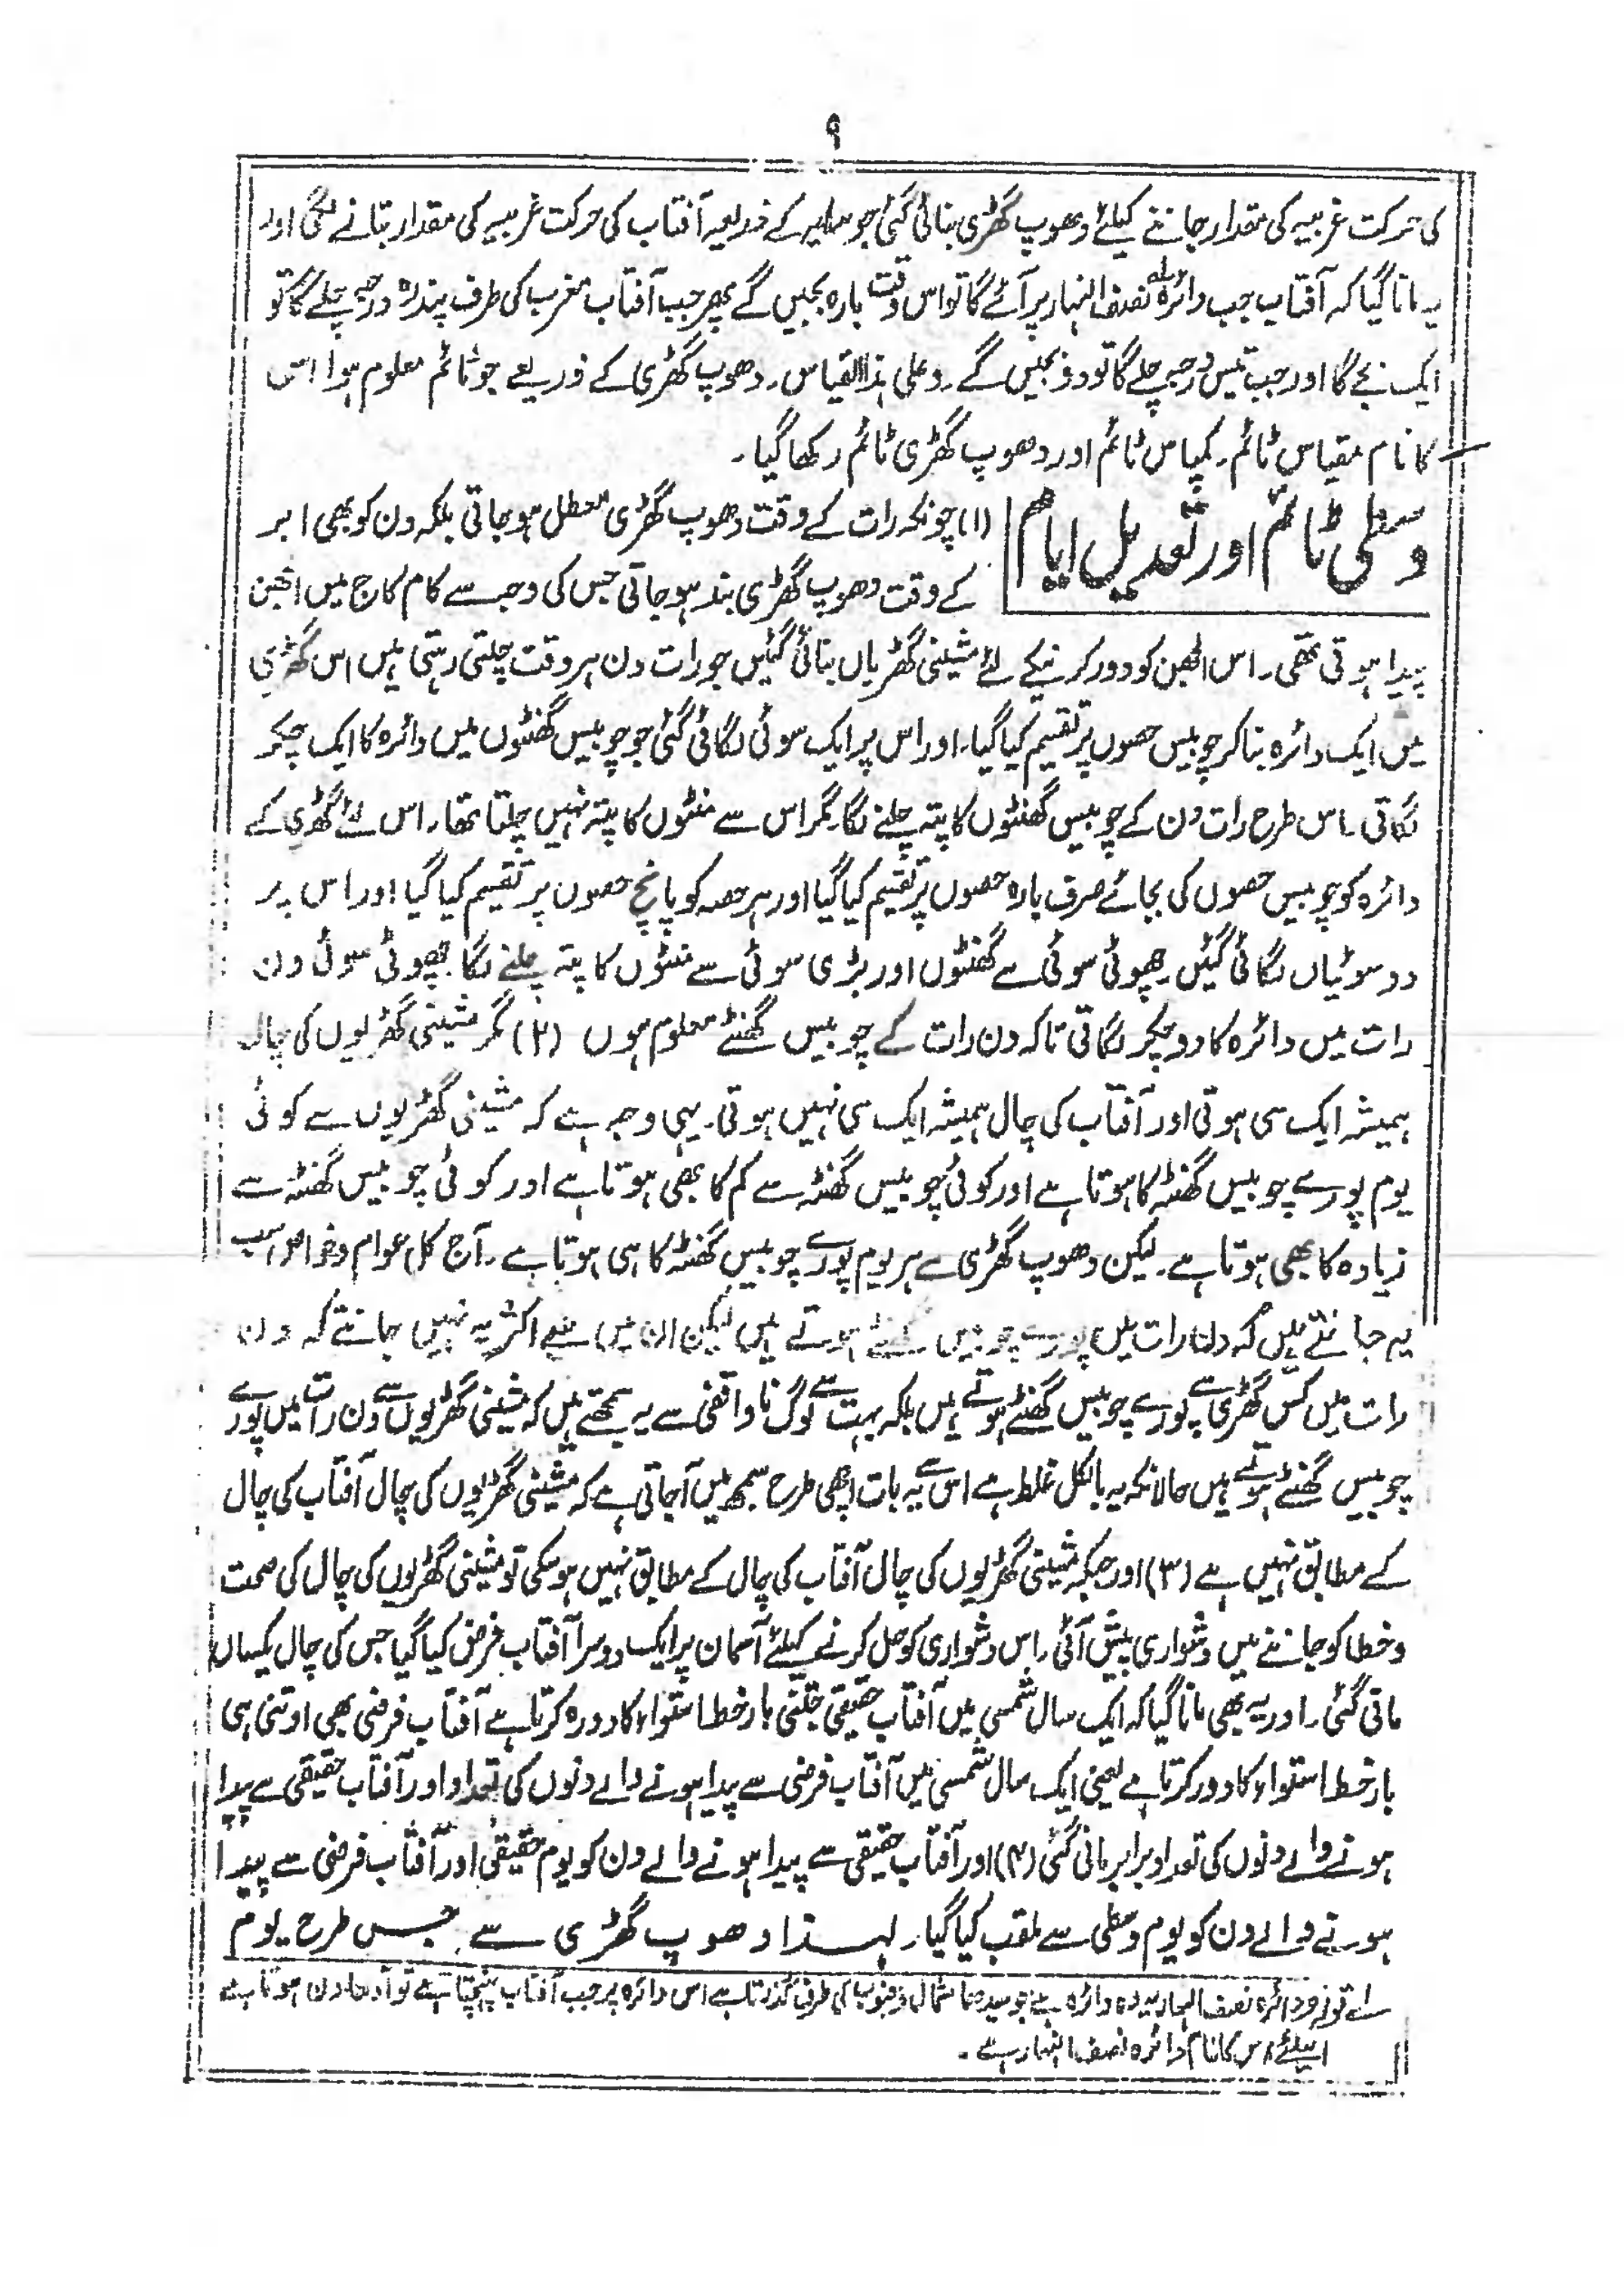 ۹
کی حرکت غربیہ کی مقدار جاننے کیلئے دھوپ گھڑی بنائی گئی جو سایہ کے ذریعہ آفتاب کی حرکت غربیہ کی مقدار بتانے لگی اور
یہ مانا گیا کہ آفتاب جب دائرہ نصف النہار پر آئے گا تو اس وقت بارہ بجیں گے پھر جب آفتاب مغرب کی طرف پندرہ درجہ چلے گا تو
ایک بجے گا اور جب تیس درجہ چلے گا تو دو بجیں گے۔ وعلیٰ ہذا القیاس۔ دھوپ گھڑی کے ذریعے جو ٹائم معلوم ہوا اس
کا نام مقیاس ٹائم۔ کمپاس ٹائم اور دھوپ گھڑی ٹائم رکھا گیا۔
وسطی ٹائم اور تعدیل ایام
(۱) چونکہ رات کے وقت دھوپ گھڑی معطل ہو جاتی بلکہ دن کو بھی ابر
کے وقت دھوپ گھڑی بند ہو جاتی جس کی وجہ سے کام کاج میں الجھن
پیدا ہوتی تھی۔ اس الجھن کو دور کرنیکے لئے مشینی گھڑیاں بنائی گئیں جو رات دن ہر وقت چلتی رہتی ہیں اس گھڑی
میں ایک دائرہ بنا کر چوبیس حصوں پر تقسیم کیا گیا۔ اور اس پر ایک سوئی لگائی گئی جو چوبیس گھنٹوں میں دائرہ کا ایک چکر
لگاتی۔ اس طرح رات دن کے چوبیس گھنٹوں کا پتہ چلنے لگا۔ مگر اس سے منٹوں کا پتہ نہیں چلتا تھا۔ اس لئے گھڑی کے
دائرہ کو چوبیس حصوں کی بجائے صرف بارہ حصوں پر تقسیم کیا گیا اور ہر حصہ کو پانچ حصوں پر تقسیم کیا گیا اور اس پر
دو سوئیاں لگائی گئیں۔ چھوٹی سوئی سے گھنٹوں اور بڑی سوئی سے منٹوں کا پتہ چلنے لگا۔ چھوٹی سوئی دن
رات میں دائرہ کا دو چکر لگاتی تاکہ دن رات کے چوبیس گھنٹے معلوم ہوں (۲) مگر مشینی گھڑیوں کی چال
ہمیشہ ایک سی ہوتی اور آفتاب کی چال ہمیشہ ایک سی نہیں ہوتی۔ یہی وجہ ہے کہ مشینی گھڑیوں سے کوئی
یوم پورے چوبیس گھنٹہ کا ہوتا ہے اور کوئی چوبیس گھنٹہ سے کم کا بھی ہوتا ہے اور کوئی چوبیس گھنٹہ سے
زیادہ کا بھی ہوتا ہے۔ لیکن دھوپ گھڑی سے ہر یوم پورے چوبیس گھنٹہ کا ہی ہوتا ہے۔ آج کل عوام وخواص سب
یہ جانتے ہیں کہ دن رات میں پورے چوبیس گھنٹے ہوتے ہیں لیکن ان میں سے اکثر یہ نہیں جانتے کہ دن
رات میں کس گھڑی سے پورے چوبیس گھنٹے ہوتے ہیں بلکہ بہت سے لوگ ناواقفی سے یہ سمجھتے ہیں کہ مشینی گھڑیوں سے دن رات میں پورے
چوبیس گھنٹے ہوتے ہیں حالانکہ یہ بالکل غلط ہے اس سے یہ بات اچھی طرح سمجھ میں آجاتی ہے کہ مشینی گھڑیوں کی چال آفتاب کی چال
کے مطابق نہیں ہے (۳) اور جبکہ مشینی گھڑیوں کی چال آفتاب کی چال کے مطابق نہیں ہو سکی تو مشینی گھڑیوں کی چال کی صحت
وخطا کو جاننے میں دشواری پیش آئی۔ اس دشواری کو حل کرنے کیلئے آسمان پر ایک دوسرا آفتاب فرض کیا گیا جس کی چال یکساں
مانی گئی۔ اور یہ بھی مانا گیا کہ ایک سال شمسی میں آفتاب حقیقی جتنی بار خط استواء کا دورہ کرتا ہے آفتاب فرضی بھی اوتنی ہی
بار خط استواء کا دور کرتا ہے یعنی ایک سال شمسی میں آفتاب فرضی سے پیدا ہونے والے دنوں کی تعداد اور آفتاب حقیقی سے پیدا
ہونے والے دنوں کی تعداد برابر مانی گئی (۴) اور آفتاب حقیقی سے پیدا ہونے والے دن کو یوم حقیقی اور آفتاب فرضی سے پیدا
ہونے والے دن کو یوم وسطی سے ملقب کیا گیا۔ لہذا دھوپ گھڑی سے جس طرح یوم
لے دائرہ نصف النہار یہ وہ دائرہ ہے جو سیدھا شمال وجنوب کی طرف گذرتا ہے اس دائرہ پر جب آفتاب پہنچتا ہے تو آدھا دن ہوتا ہے
اسلئے اس کا نام دائرہ نصف النہار ہے۔